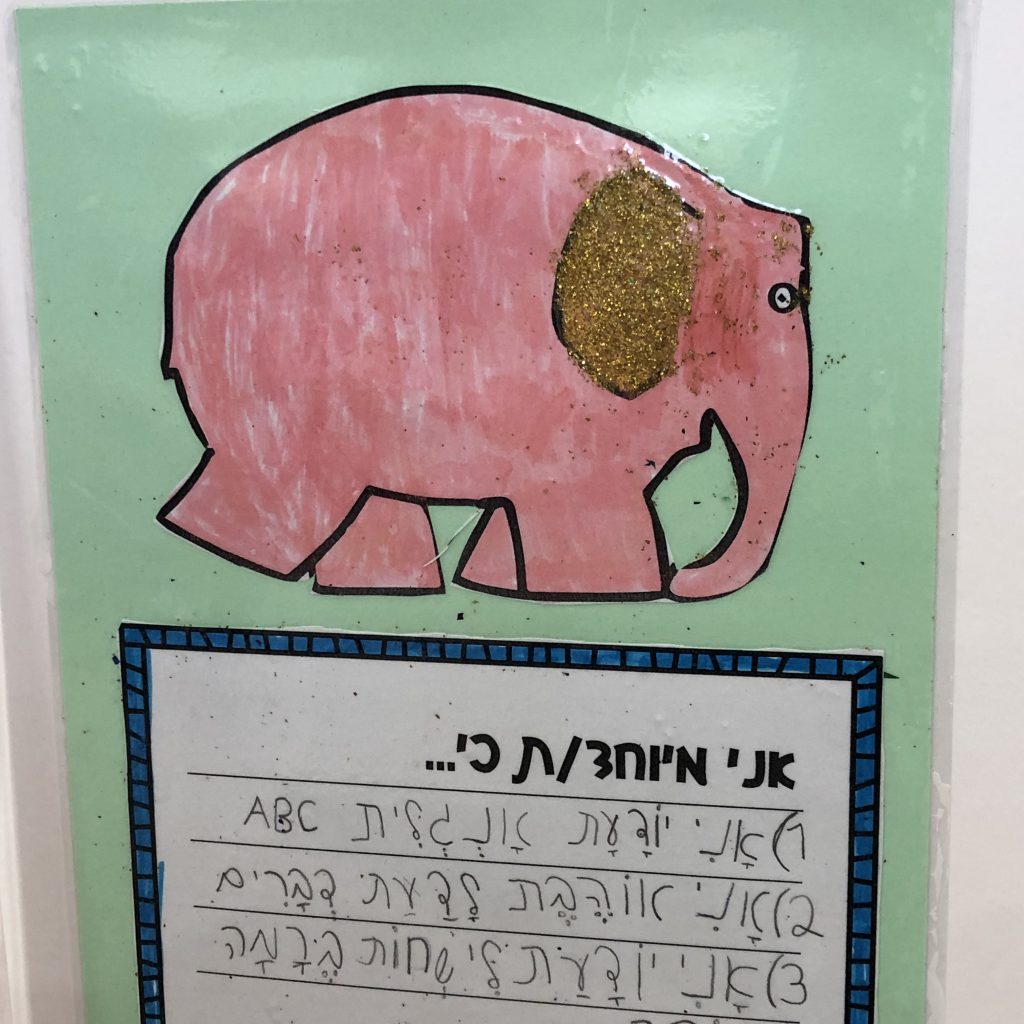 אני מיוחד/ת כי...
1) אָנִי יוֹדָעָת אָנְגְלִית ABC
2) אָנִי אוֹהֶבֶת לָדַעַת דְבָרִים
3) אָנִי יוֹדָעַת לִי שְחוֹת בֶּרָמָה